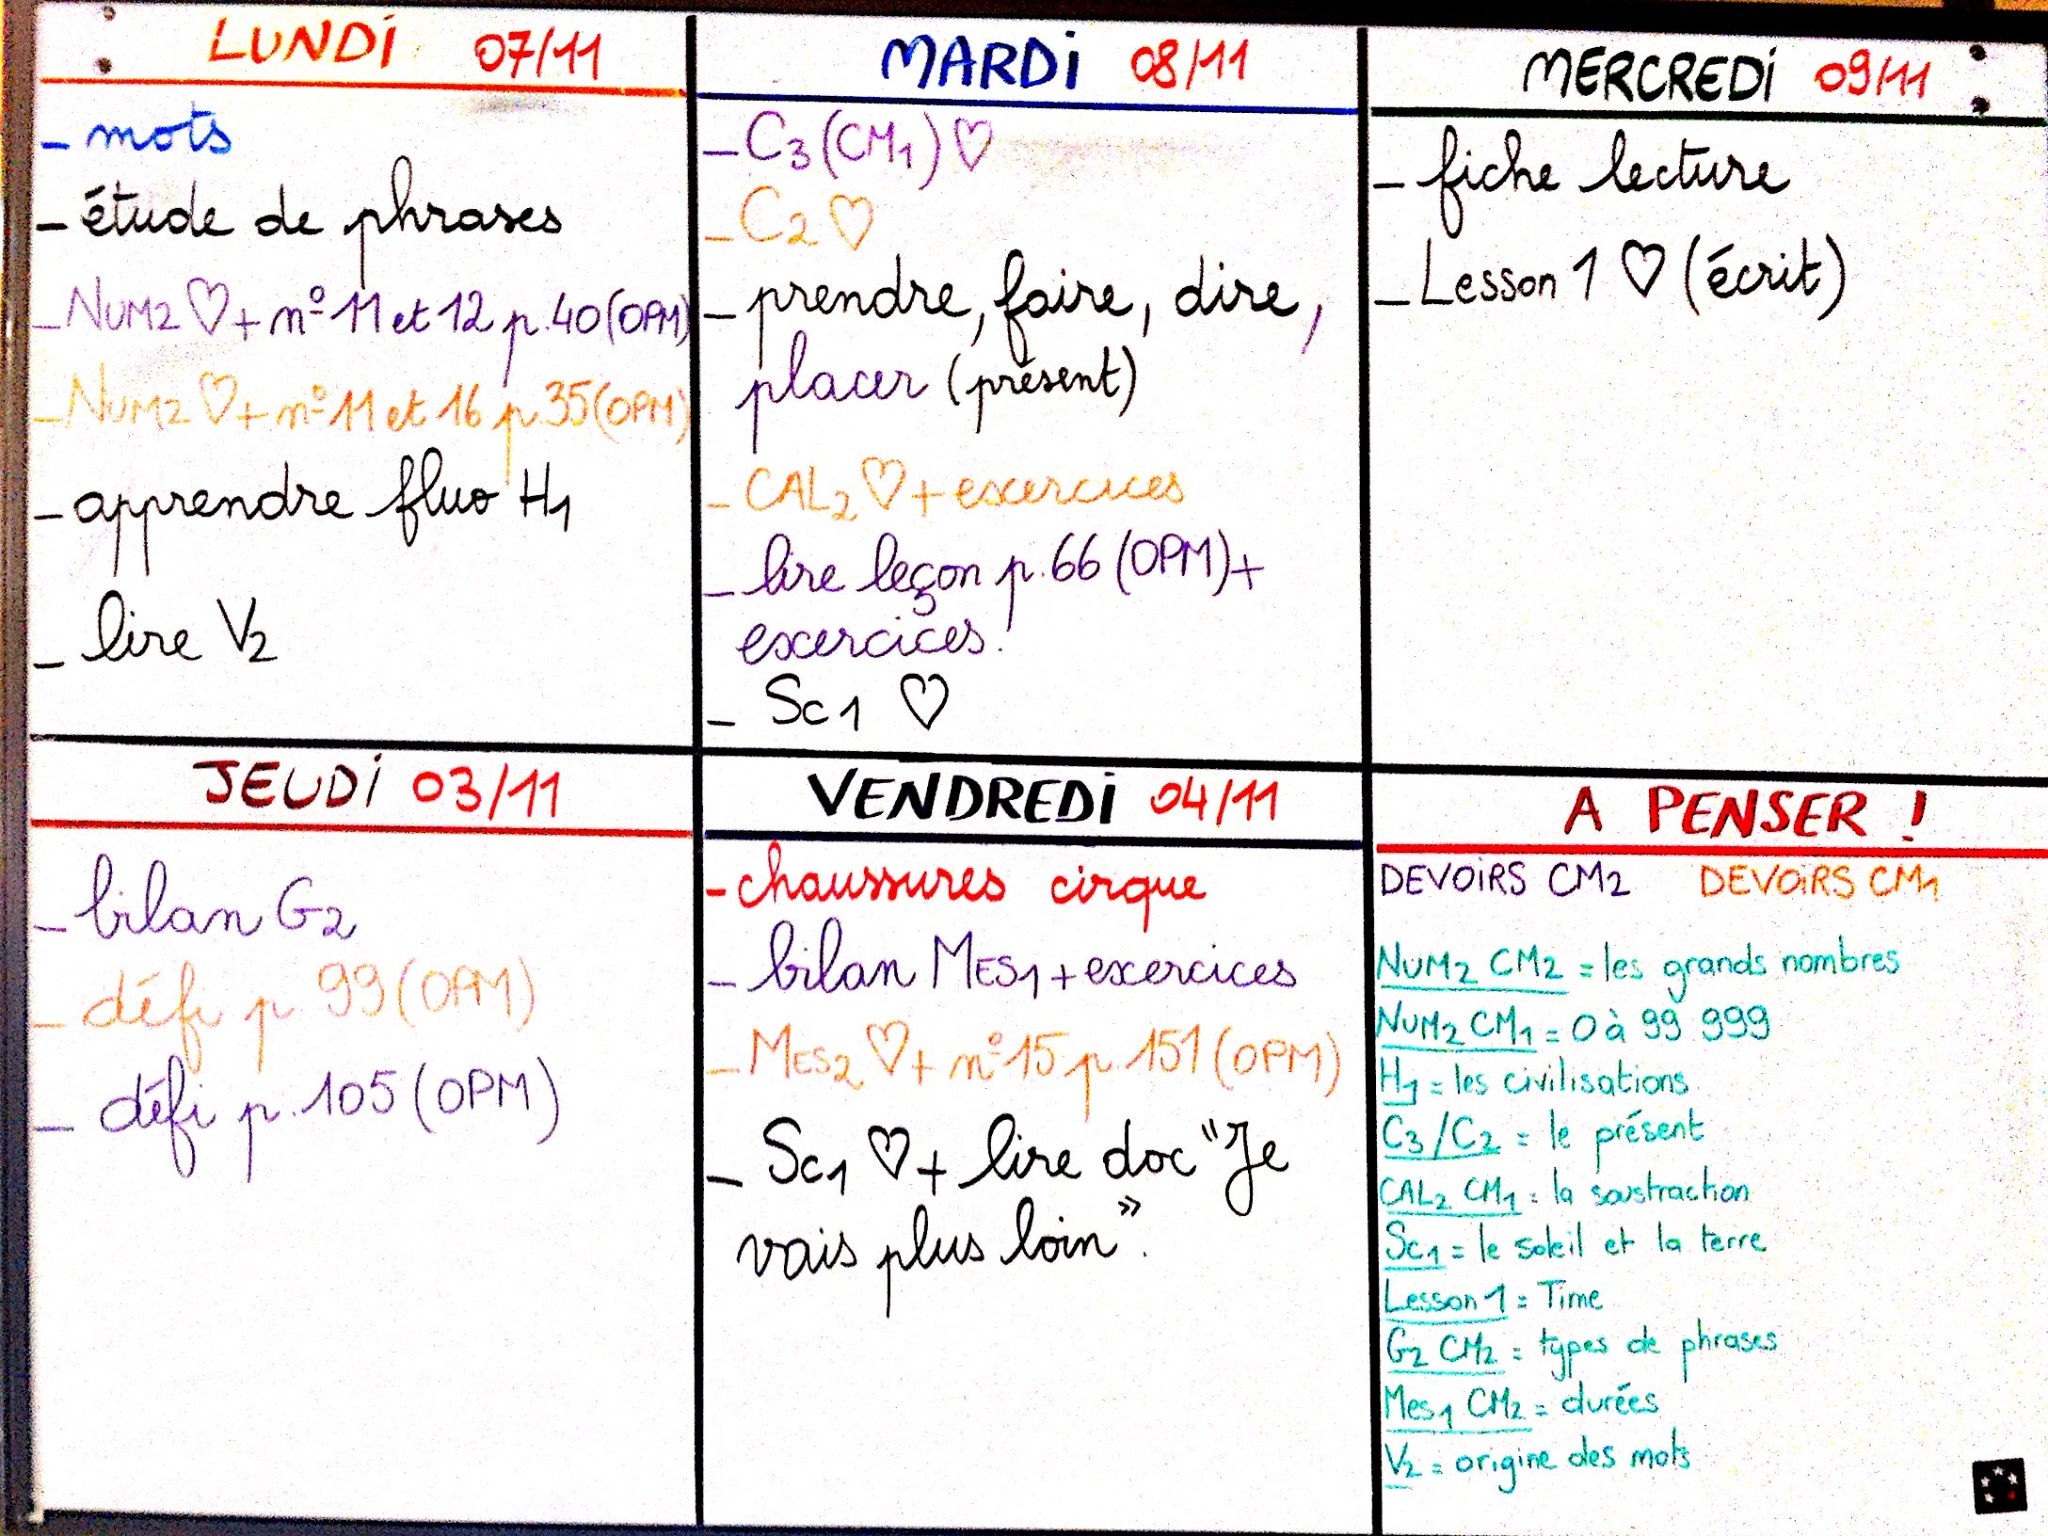 LUNDI 07/11
- mots
- étude de phrases
- NUM2 ♡ + n° 11 et 12 p.40 (OPM)
- NUM2 ♡ + n° 11 et 16 p.35 (OPM)
- apprendre fluo H1
- lire V2
MARDI 08/11
- C3 (CM1) ♡
- C2 ♡
- prendre, faire, dire,
placer (présent)
- CAL2 ♡ + exercices
- lire leçon p.66 (OPM) +
exercices.
- Sc1 ♡
MERCREDI 09/11
- fiche lecture
- Lesson 1 ♡ (écrit)
JEUDI 03/11
- bilan G2
- défi p.99 (OPM)
- défi p.105 (OPM)
VENDREDI 04/11
- chaussures cirque
- bilan MES1 + exercices
- MES2 ♡ + n° 15 p.151 (OPM)
- Sc1 ♡ + lire doc "Je
vais plus loin".
A PENSER !
DEVOIRS CM2 DEVOIRS CM1
NUM2 CM2 = les grands nombres
NUM2 CM1 = 0 à 99 999
H1 = les civilisations
C3/C2 = le présent
CAL2 CM1 = la soustraction
Sc1 = le soleil et la terre
Lesson 1 = Time
G2 CM2 = types de phrases
Mes1 CM2 = durées
V2 = origine des mots